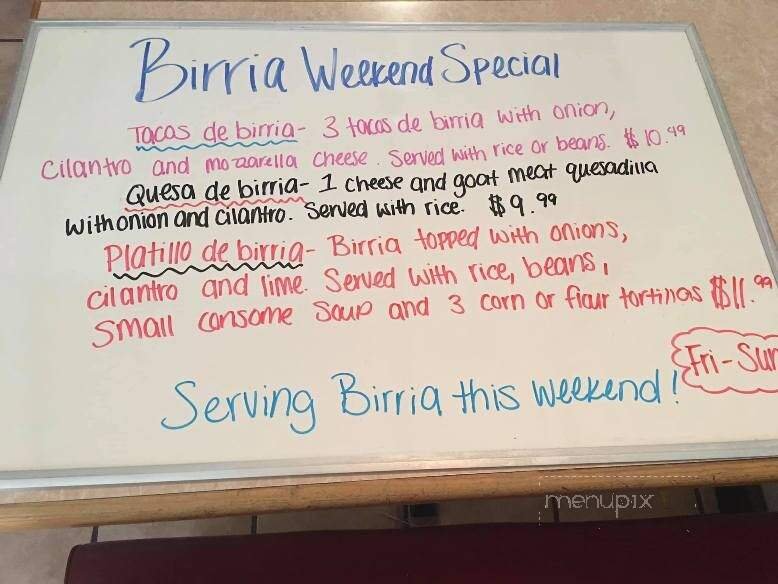 Birria Weekend Special
Tacos de birria- 3 tacos de birria with onion,
cilantro and mozzarella cheese. Served with rice or beans. $10.49
Quesa de birria- 1 cheese and goat meat quesadilla
with onion and cilantro. Served with rice. $9.99
Platillo de birria- Birria topped with onions,
cilantro and lime. Served with rice, beans,
small consome soup and 3 corn or flour tortillas $11.99
Fri-Sun
Serving Birria this weekend!
menupix